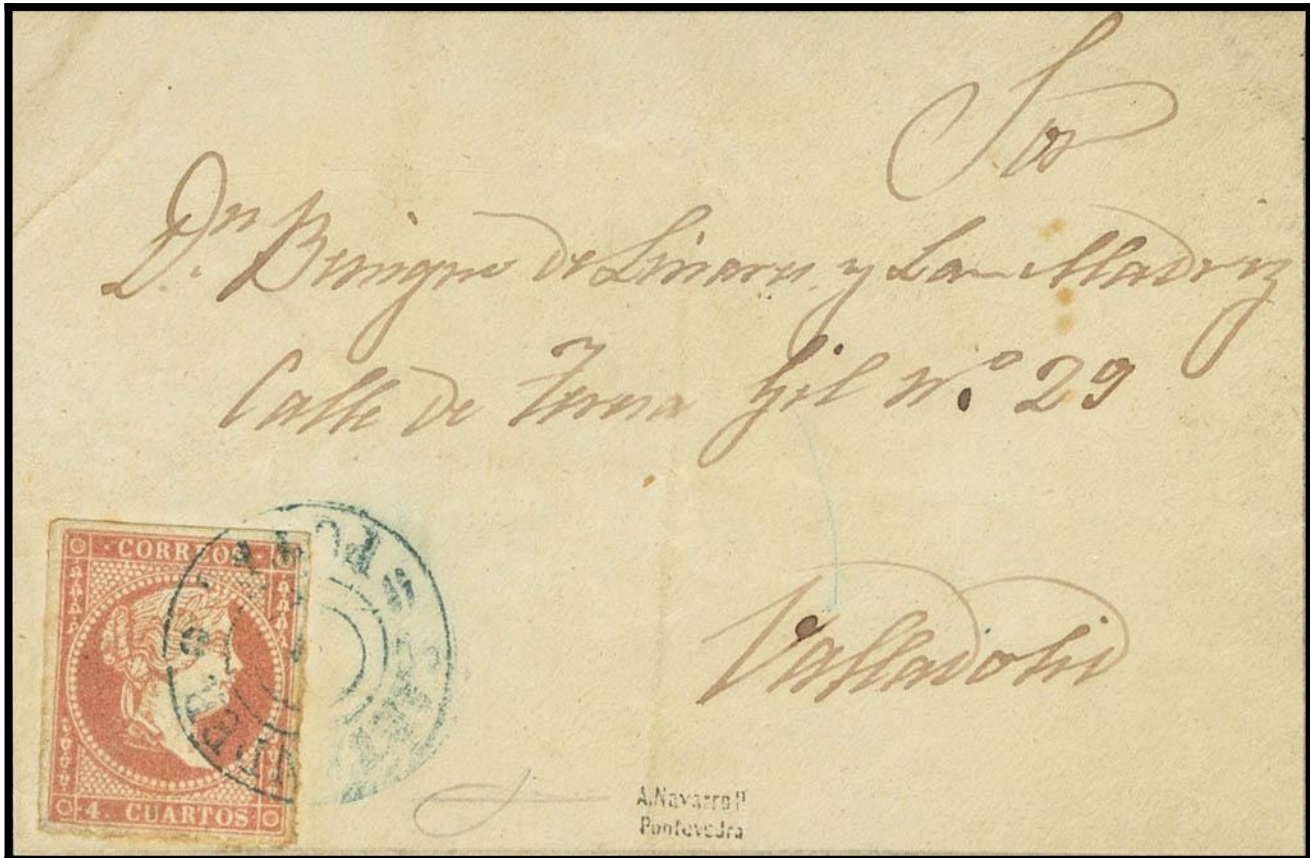 Sor
Dn. Benigno de Linares y La Madriz
Calle de Teresa Gil No. 29
Valladolid
CORREOS
4. CUARTOS
A. Navarro P
Pontevedra